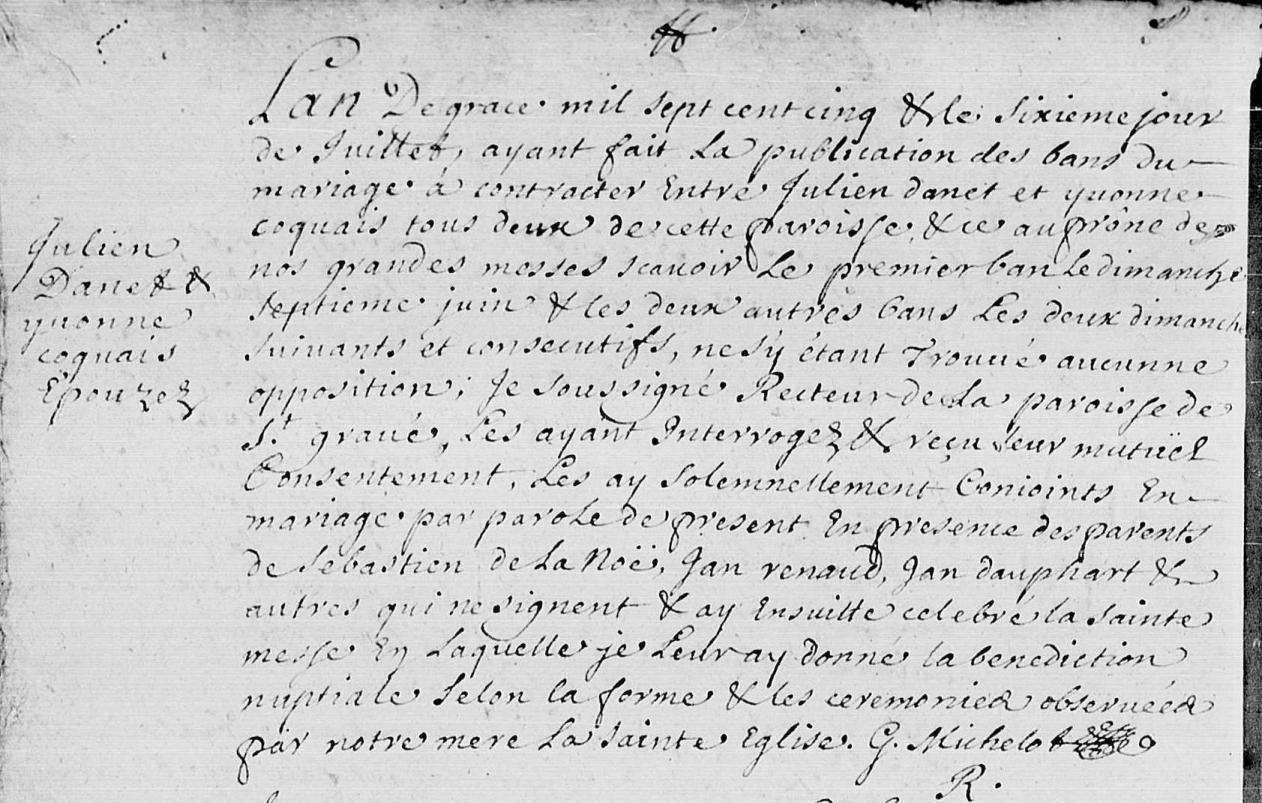 Julien
Danet &
yvonne
coquais
Epouzez
Lan De grace mil sept cent cinq & le sixieme jour
de Juillet, ayant fait La publication des bans du
mariage à contracter Entre Julien danet et yvonne
coquais tous deux de cette paroisse, & ce au prône de
nos grandes messes scavoir Le premier ban Le dimanche
septieme juin & les deux autres bans Les deux dimanche
suivants et consecutifs, ne sy étant Trouvé aucunne
opposition; Je soussigné Recteur de La paroisse de
St gravé, Les ayant Interrogez & reçu leur mutüel
Consentement, Les ay solemnellement Conioints En
mariage par parole de present En presence des parents
de sebastien de La Noë, Jan renaud, Jan dauphart &
autres qui ne signent & ay Ensuitte celebré la sainte
messe En Laquelle je Leur ay donné la benediction
nuptiale selon la forme & les ceremonies observées
par notre mere La sainte Eglise. G. Michelot
R.